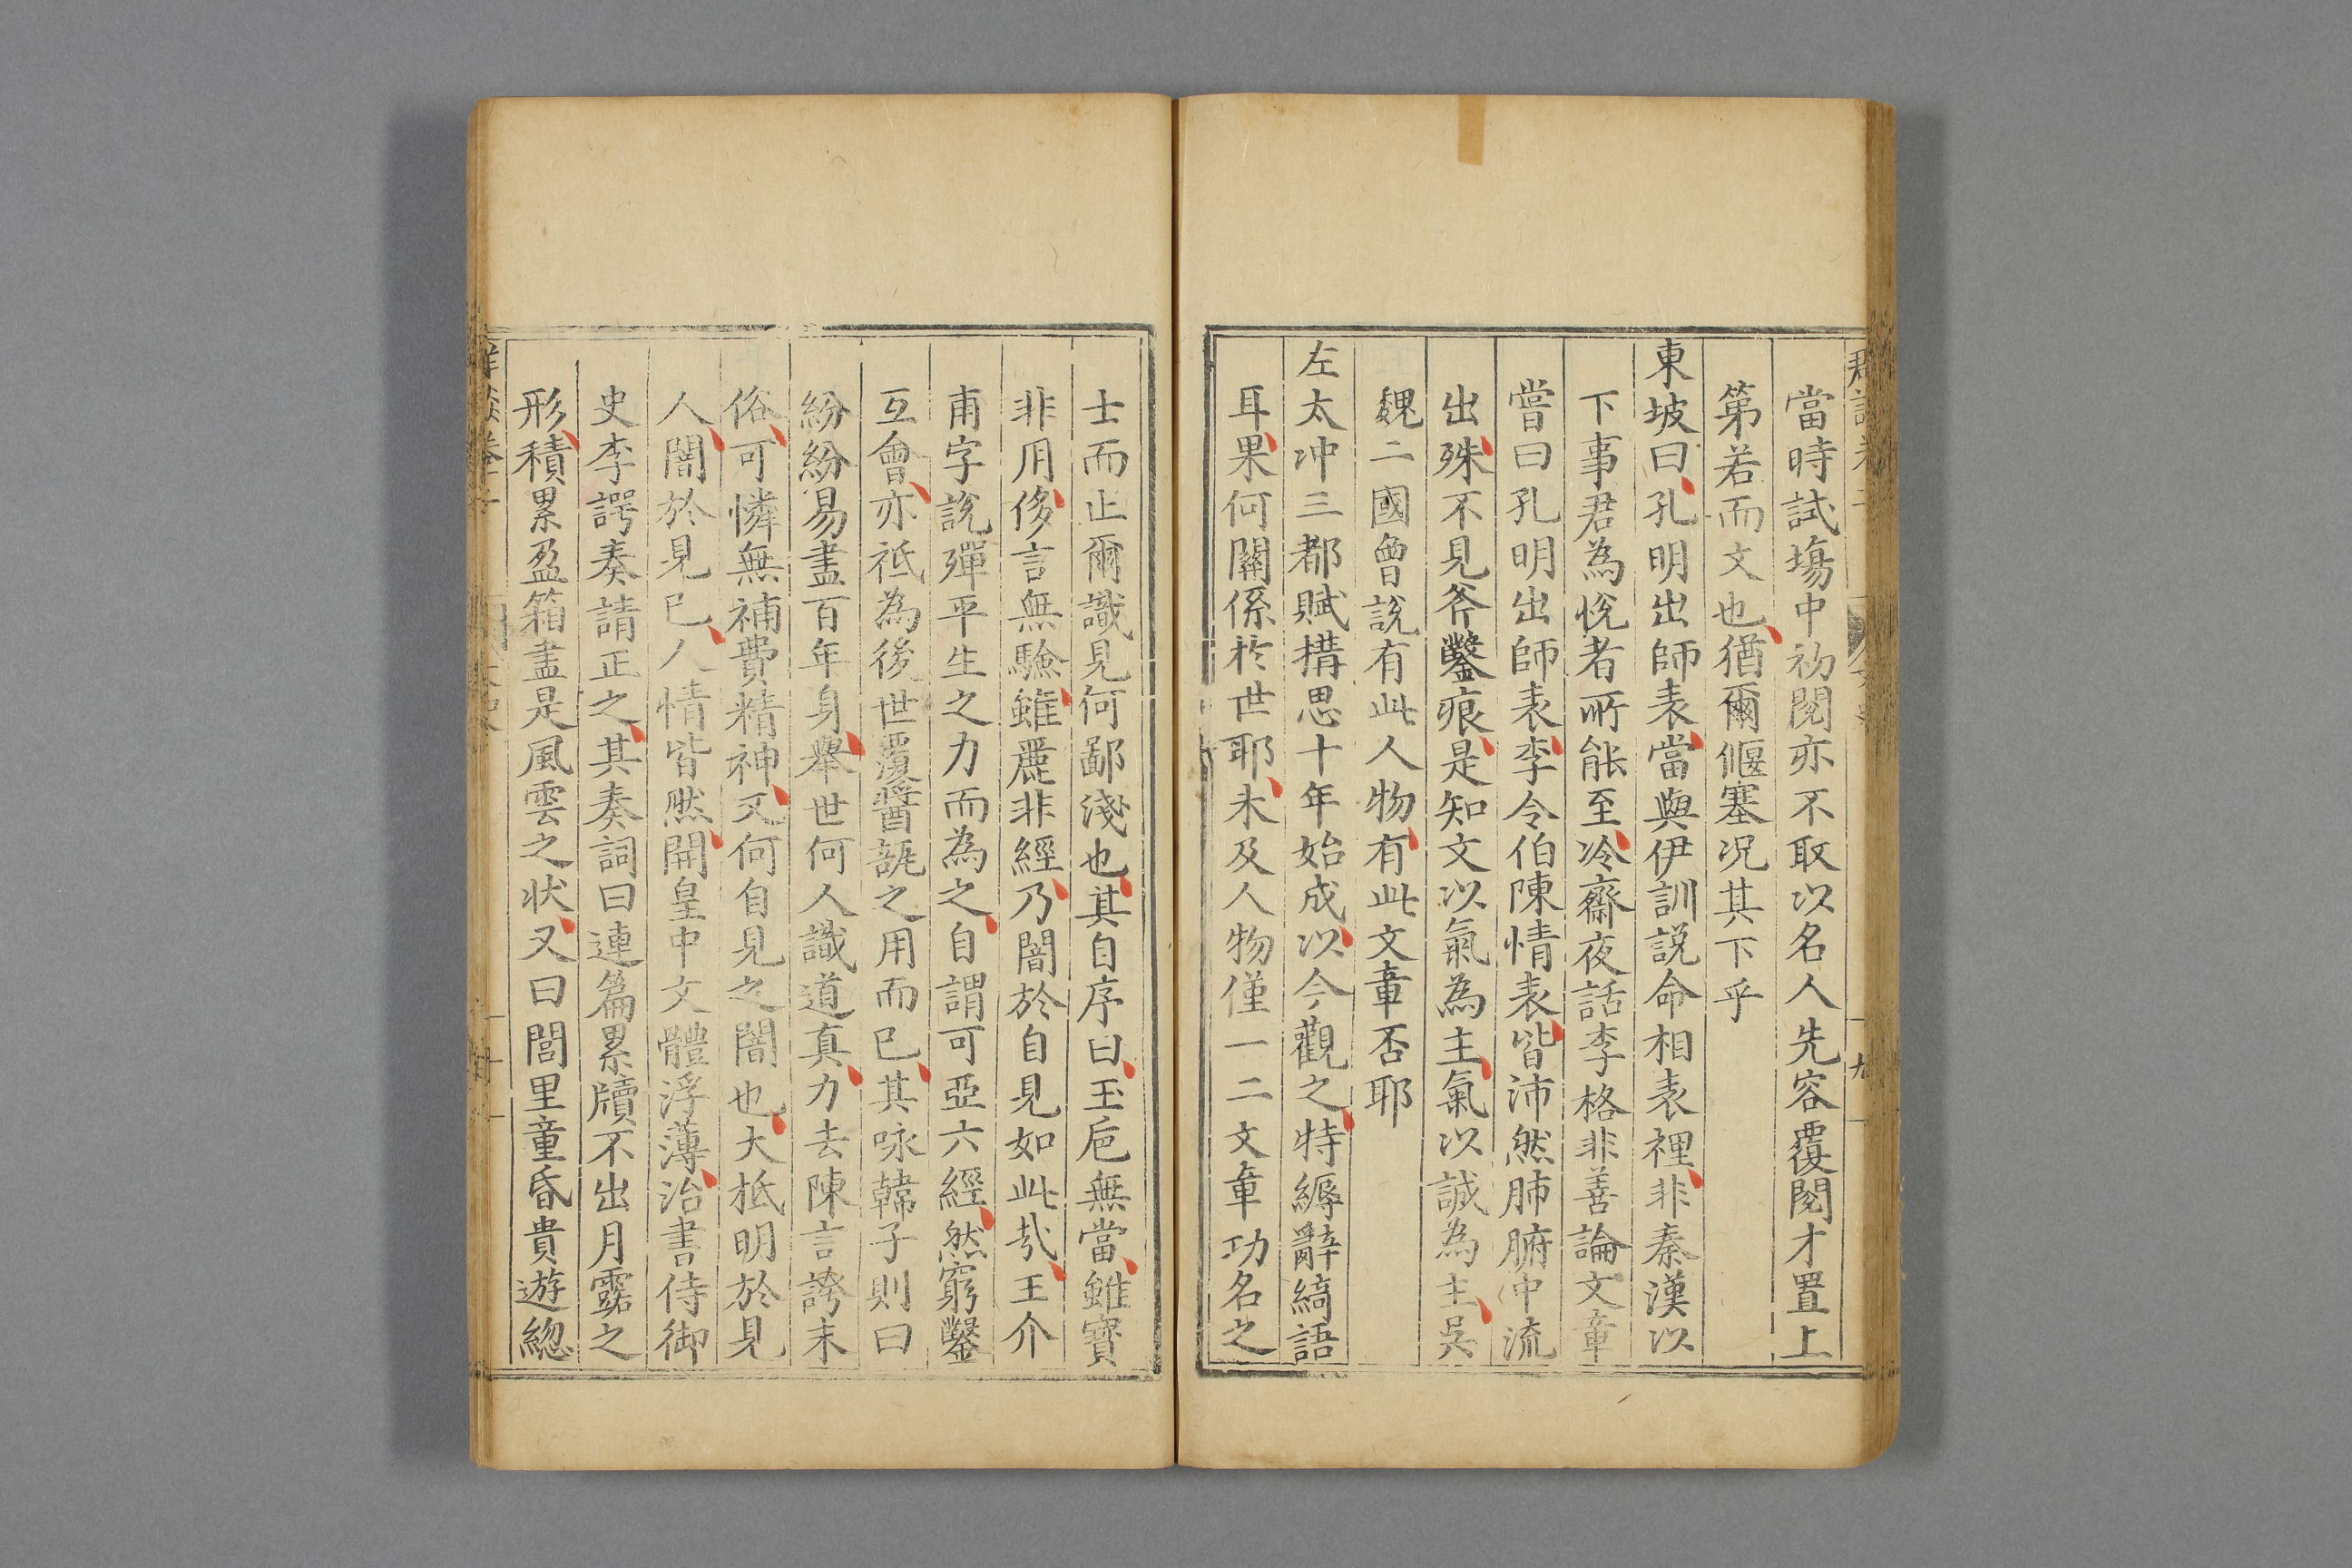 當時試場中初閱亦不取以名人先容覆閱才置上
第若而文也猶爾偃塞况其下乎
東坡曰孔明出師表當與伊訓説命相表裡非秦漢以
下事君為悅者所能至冷齋夜話李格非善論文章
嘗曰孔明出師表李令伯陳情表皆沛然肺腑中流
出殊不見斧鑿痕是知文以氣為主氣以誠為主吳
魏二國曾說有此人物有此文章否耶
左太冲三都賦構思十年始成以今觀之特縟辭綺語
耳果何關係於世耶未及人物僅一二文章功名之
士而止爾識見何鄙淺也其自序曰玉巵無當雖寶
非用侈言無驗雖麗非經乃闇於自見如此㢤王介
甫字說殫平生之力而為之自謂可亞六經然窮鑿
互會亦祗為後世覆醬瓿之用而已其咏韓子則曰
紛紛易盡百年身舉世何人識道真力去陳言誇末
俗可憐無補費精神又何自見之闇也大抵明於見
人闇於見已人情皆然開皇中文體浮薄治書侍御
史李諤奏請正之其奏詞曰連篇累牘不出月露之
形積累盈箱盡是風雲之狀又曰閭里童昏貴遊総